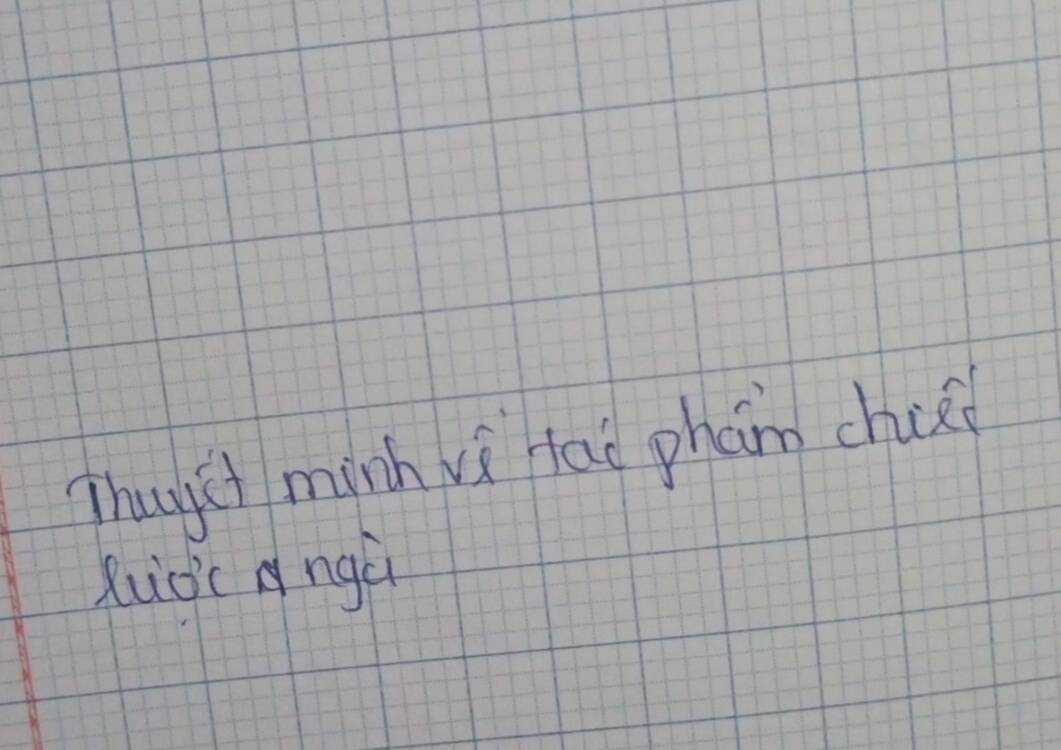 Thuyết minh về tác phẩm chiếc
lược ngà